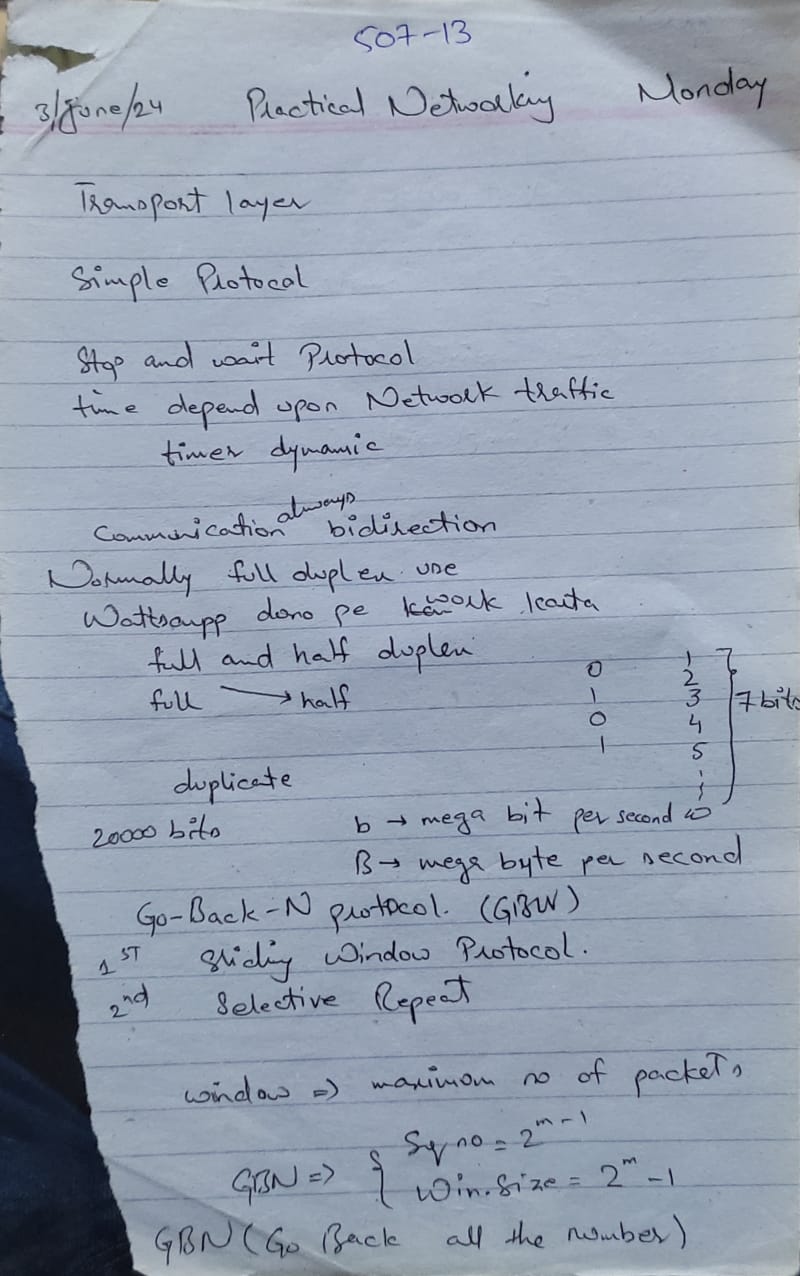 507-13
3/June/24 Practical Networking Monday
Transport layer
Simple Protocal
Stop and wait Protocol
time depend upon Network traffic
timer dynamic
Communication always bidirection
Normally full duplex use
Wattsaupp dono pe work karta
full and half duplex
full → half
0 1
1 2
0 3
1 4
5
7 bits
duplicate
20000 bits b → mega bit per second
B → mega byte per second
Go-Back-N protocol. (GBN)
1ST Sliding Window Protocol.
2nd Selective Repeat
window => maximum no of packets
GBN => { Sq no = 2^m-1
Win.Size = 2^m -1
GBN (Go Back all the number)